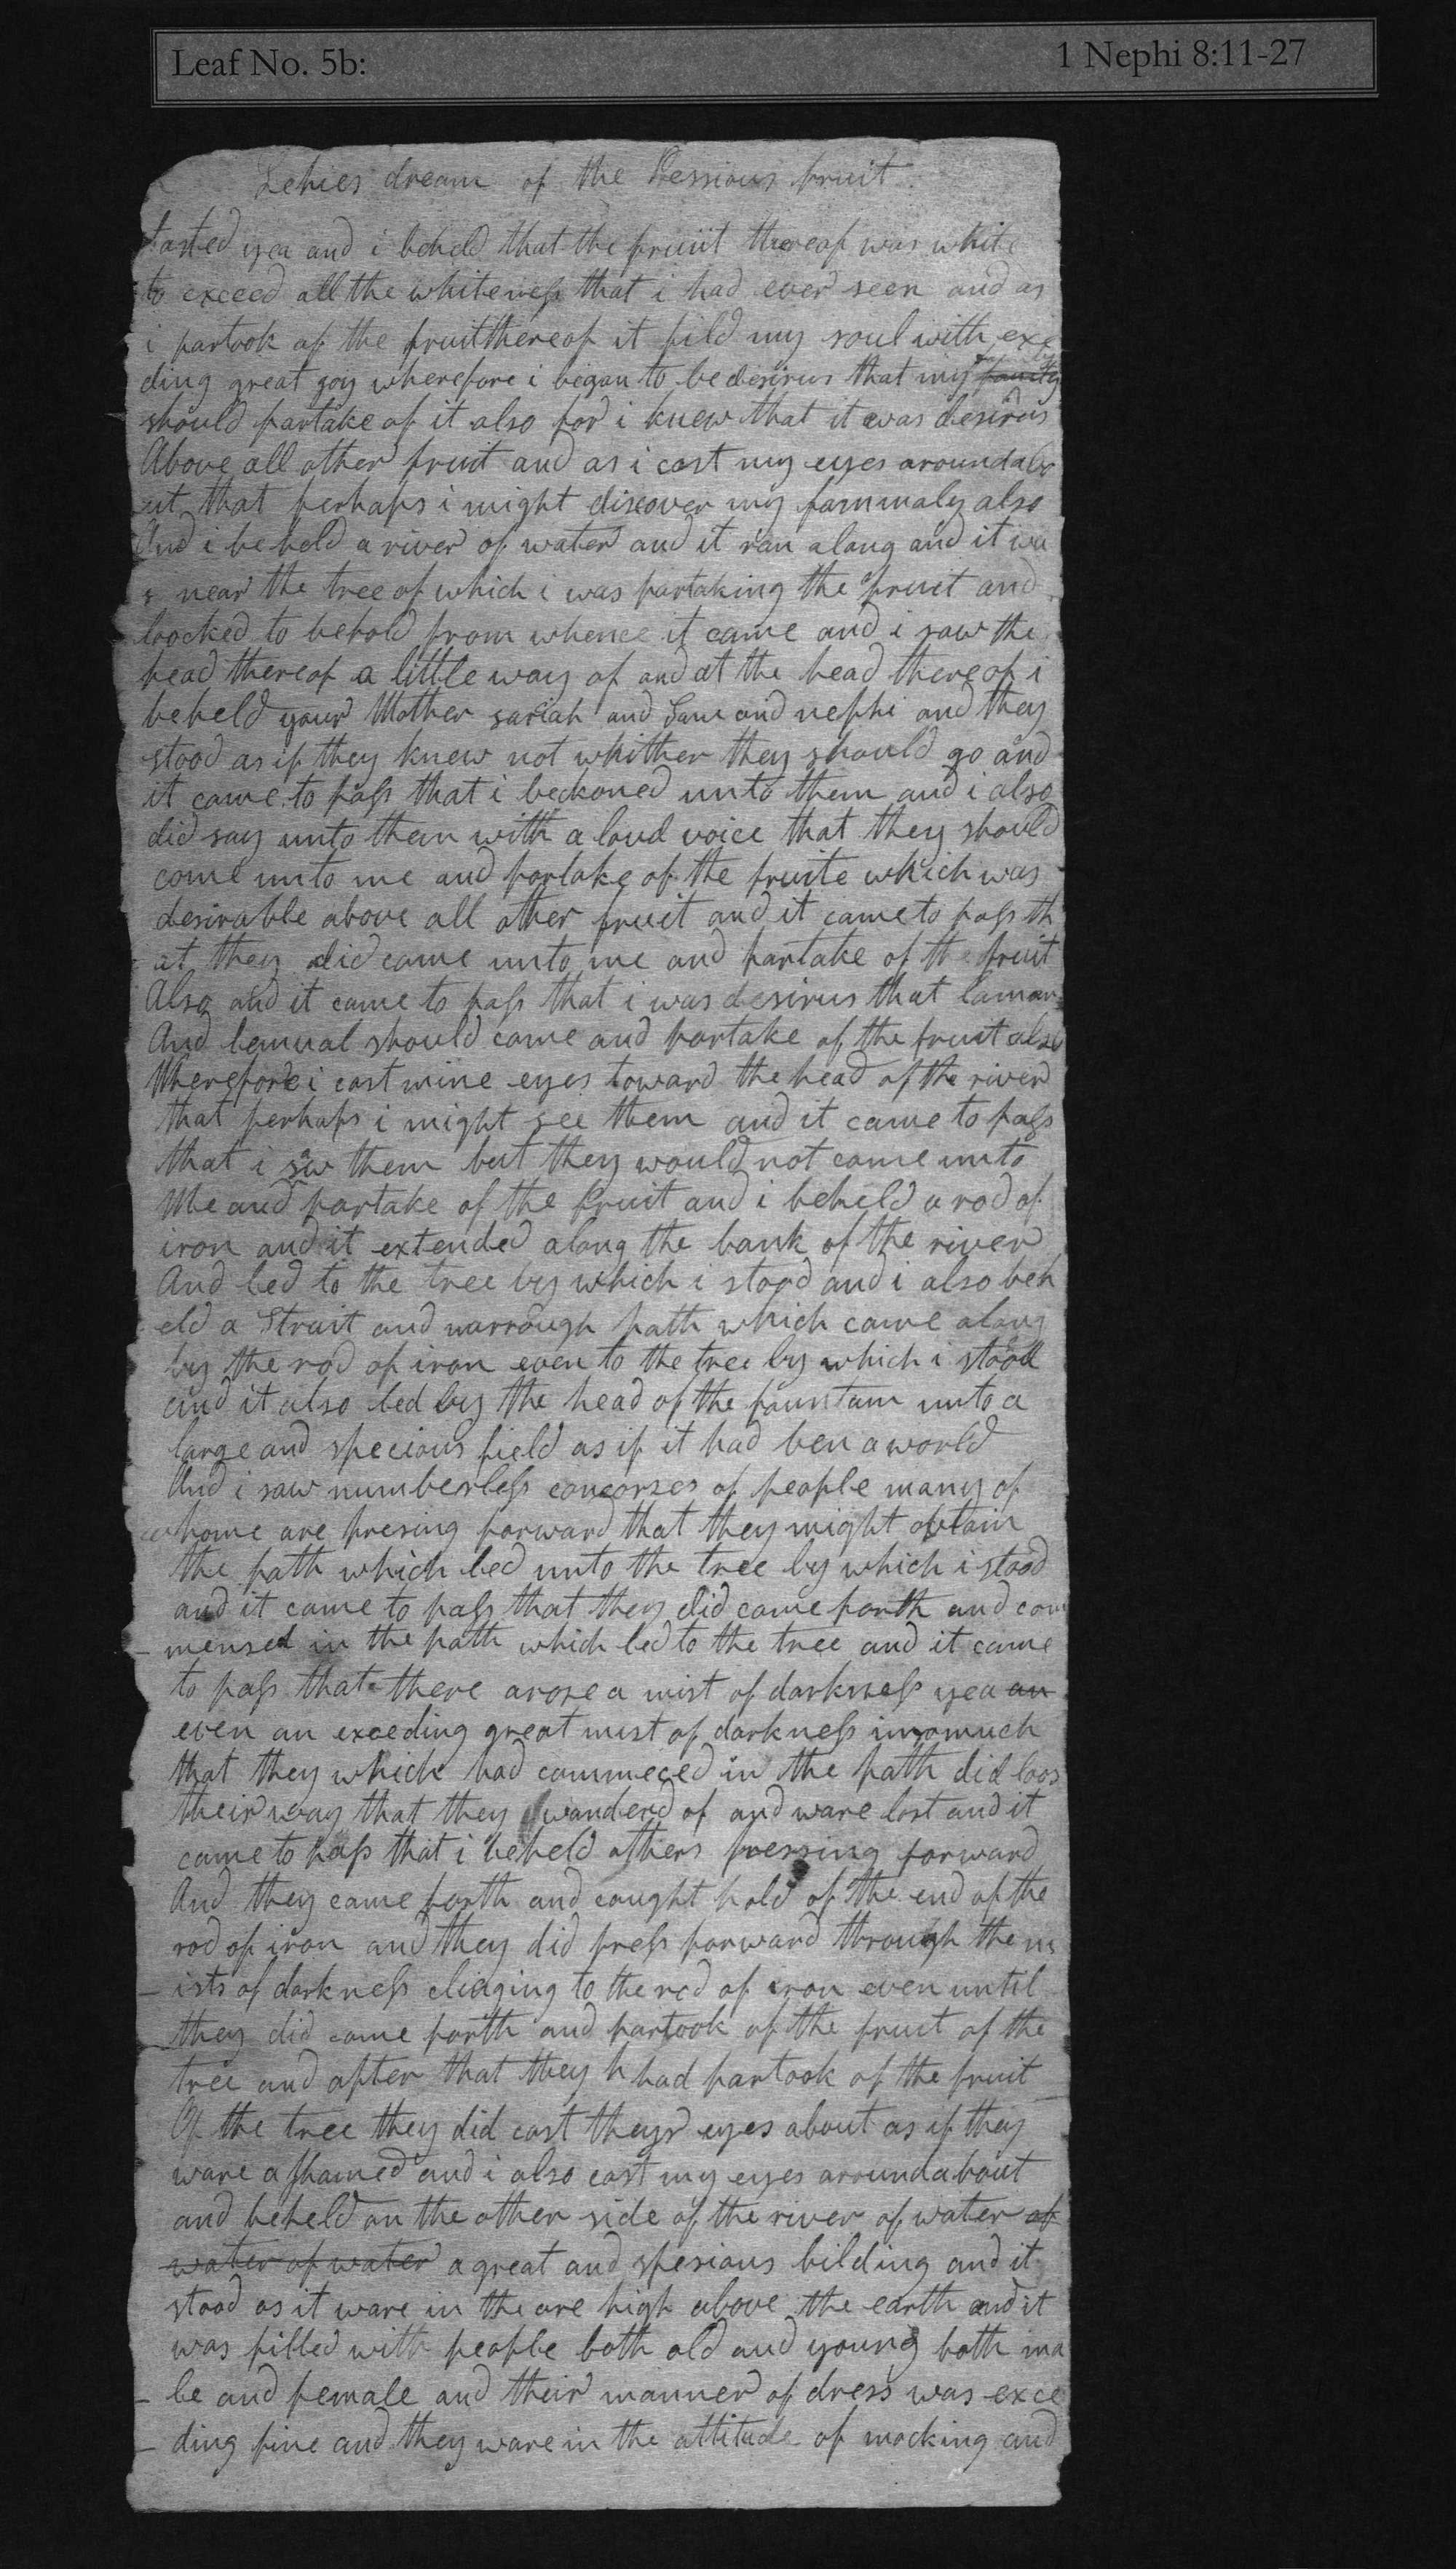 Leaf No. 5b:
1 Nephi 8:11-27
Lehies dream of the Pessious fruit
tasted yea and i beheld that the fruiit thereof was white
to exceed all the whiteness that i had ever seen and as
i partook of the fruit thereof it fild my soul with exe
ding great goy wherefore i began to be desirus that my
should partake of it also for i knew that it was desirus
Above all other fruit and as i cast my eyes around abo
ut that perhaps i might discover my fammaly also
And i beheld a river of water and it ran along and it wa
s near the tree of which i was partaking the fruit and
loocked to behold from whence it came and i saw the
head thereof a little way of and at the head thereof i
beheld your Mother sariah and Sam and nephi and they
stood as if they knew not whither they should go and
it came to pass that i beckoned unto them and i also
did say unto them with a loud voice that they should
come unto me and partake of the fruite which was
desirable above all other fruit and it came to pass th
at they did come unto me and partake of the fruit
Also and it came to pass that i was desirus that laman
And lemual should come and partake of the fruit also
Wherefore i cast mine eyes toward the head of the river
that perhaps i might see them and it came to pass
that i saw them but they would not come unto
Me and partake of the fruit and i beheld a rod of
iron and it extended along the bank of the river
And led to the tree by which i stood and i also beh
eld a Strait and narrough path which came along
by the rod of iron even to the tree by which i stood
and it also led by the head of the fountain unto a
large and specious field as if it had ben a world
And i saw numberless concorses of people many of
whome are presing forward that they might obtain
the path which led unto the tree by which i stood
and it came to pass that they did come forth and com
- mensed in the path which led to the tree and it came
to pass that there arose a mist of darkness yea an
even an exceding great mist of darkness insomuch
that they which had commeced in the path did loos
their way that they wanderd of and ware lost and it
came to pass that i beheld others pressing forward
And they came forth and caught hold of the end of the
rod of iron and they did press forward through the m
- ists of darkness clinging to the rod of iron even until
they did come forth and partook of the fruit of the
tree and after that they h had partook of the fruit
Of the tree they did cast theyr eyes about as if they
ware ashamed and i also cast my eyes around about
and beheld on the other side of the river of water of
water of water a great and spesious bilding and it
stood as it ware in the are high above the earth and it
was filled with people both old and young both ma
- le and female and their manner of dress was exce
- ding fine and they ware in the attitude of mocking and